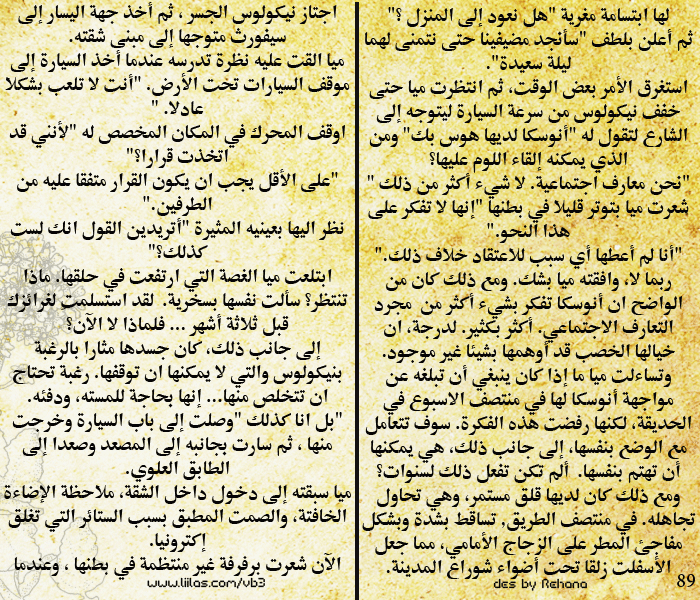 لها ابتسامة مغرية "هل نعود إلى المنزل ؟"
ثم أعلن بلطف "سأنجد مضيفينا حتى نتمنى لهما
ليلة سعيدة".
استغرق الأمر بعض الوقت، ثم انتظرت ميا حتى
خفف نيكولوس من سرعة السيارة ليتوجه إلى
الشارع لتقول له "أنوسكا لديها هوس بك" ومن
الذي يمكنه إلقاء اللوم عليها؟
"نحن معارف اجتماعية. لا شيء أكثر من ذلك "
شعرت ميا بتوتر قليلا في بطنها "إنها لا تفكر على
هذا النحو."
"أنا لم أعطها أي سبب للاعتقاد خلاف ذلك."
ربما لا، وافقته ميا بشك. ومع ذلك كان من
الواضح ان أنوسكا تفكر بشيء أكثر من مجرد
التعارف الاجتماعي. أكثر بكثير. لدرجة، ان
خيالها الخصب قد أوهمها بشيئا غير موجود.
وتساءلت ميا ما إذا كان ينبغي أن تبلغه عن
مواجهة أنوسكا لها في منتصف الاسبوع في
الحديقة، لكنها رفضت هذه الفكرة. سوف تتعامل
مع الوضع بنفسها، إلى جانب ذلك، هي يمكنها
أن تهتم بنفسها. ألم تكن تفعل ذلك لسنوات؟
ومع ذلك كان لديها قلق مستمر، وهي تحاول
تجاهله. في منتصف الطريق. تساقط بشدة وبشكل
مفاجئ المطر على الزجاج الأمامي، مما جعل
الأسفلت زلقا تحت أضواء شوراع المدينة.
89
des by Rehana
اجتاز نيكولوس الجسر ، ثم أخذ جهة اليسار إلى
سيفورث متوجها إلى مبنى شقته.
ميا القت عليه نظرة تدرسه عندما أخذ السيارة إلى
موقف السيارات تحت الأرض. "أنت لا تلعب بشكلا
عادلا. "
اوقف المحرك في المكان المخصص له "لأنني قد
اتخذت قرارا؟"
"على الأقل يجب ان يكون القرار متفقا عليه من
الطرفين."
نظر اليها بعينيه المثيرة "أتريدين القول انك لست
كذلك؟"
ابتلعت ميا الغصة التي ارتفعت في حلقها. ماذا
تنتظر؟ سألت نفسها بسخرية. لقد استسلمت لغرائزك
قبل ثلاثة أشهر ... فلماذا لا الآن؟
إلى جانب ذلك، كان جسدها مثارا بالرغبة
بنيكولوس والتي لا يمكنها ان توقفها. رغبة تحتاج
ان تتخلص منها... إنها بحاجة للمسته، ودفئه.
"بل انا كذلك "وصلت إلى باب السيارة وخرجت
منها ، ثم سارت بجانبه إلى المصعد وصعدا إلى
الطابق العلوي.
ميا سبقته إلى دخول داخل الشقة، ملاحظة الإضاءة
الخافتة، والصمت المطبق بسبب الستائر التي تغلق
إكترونيا.
الآن شعرت برفرفة غير منتظمة في بطنها ، وعندما
www.liilas.com/vb3